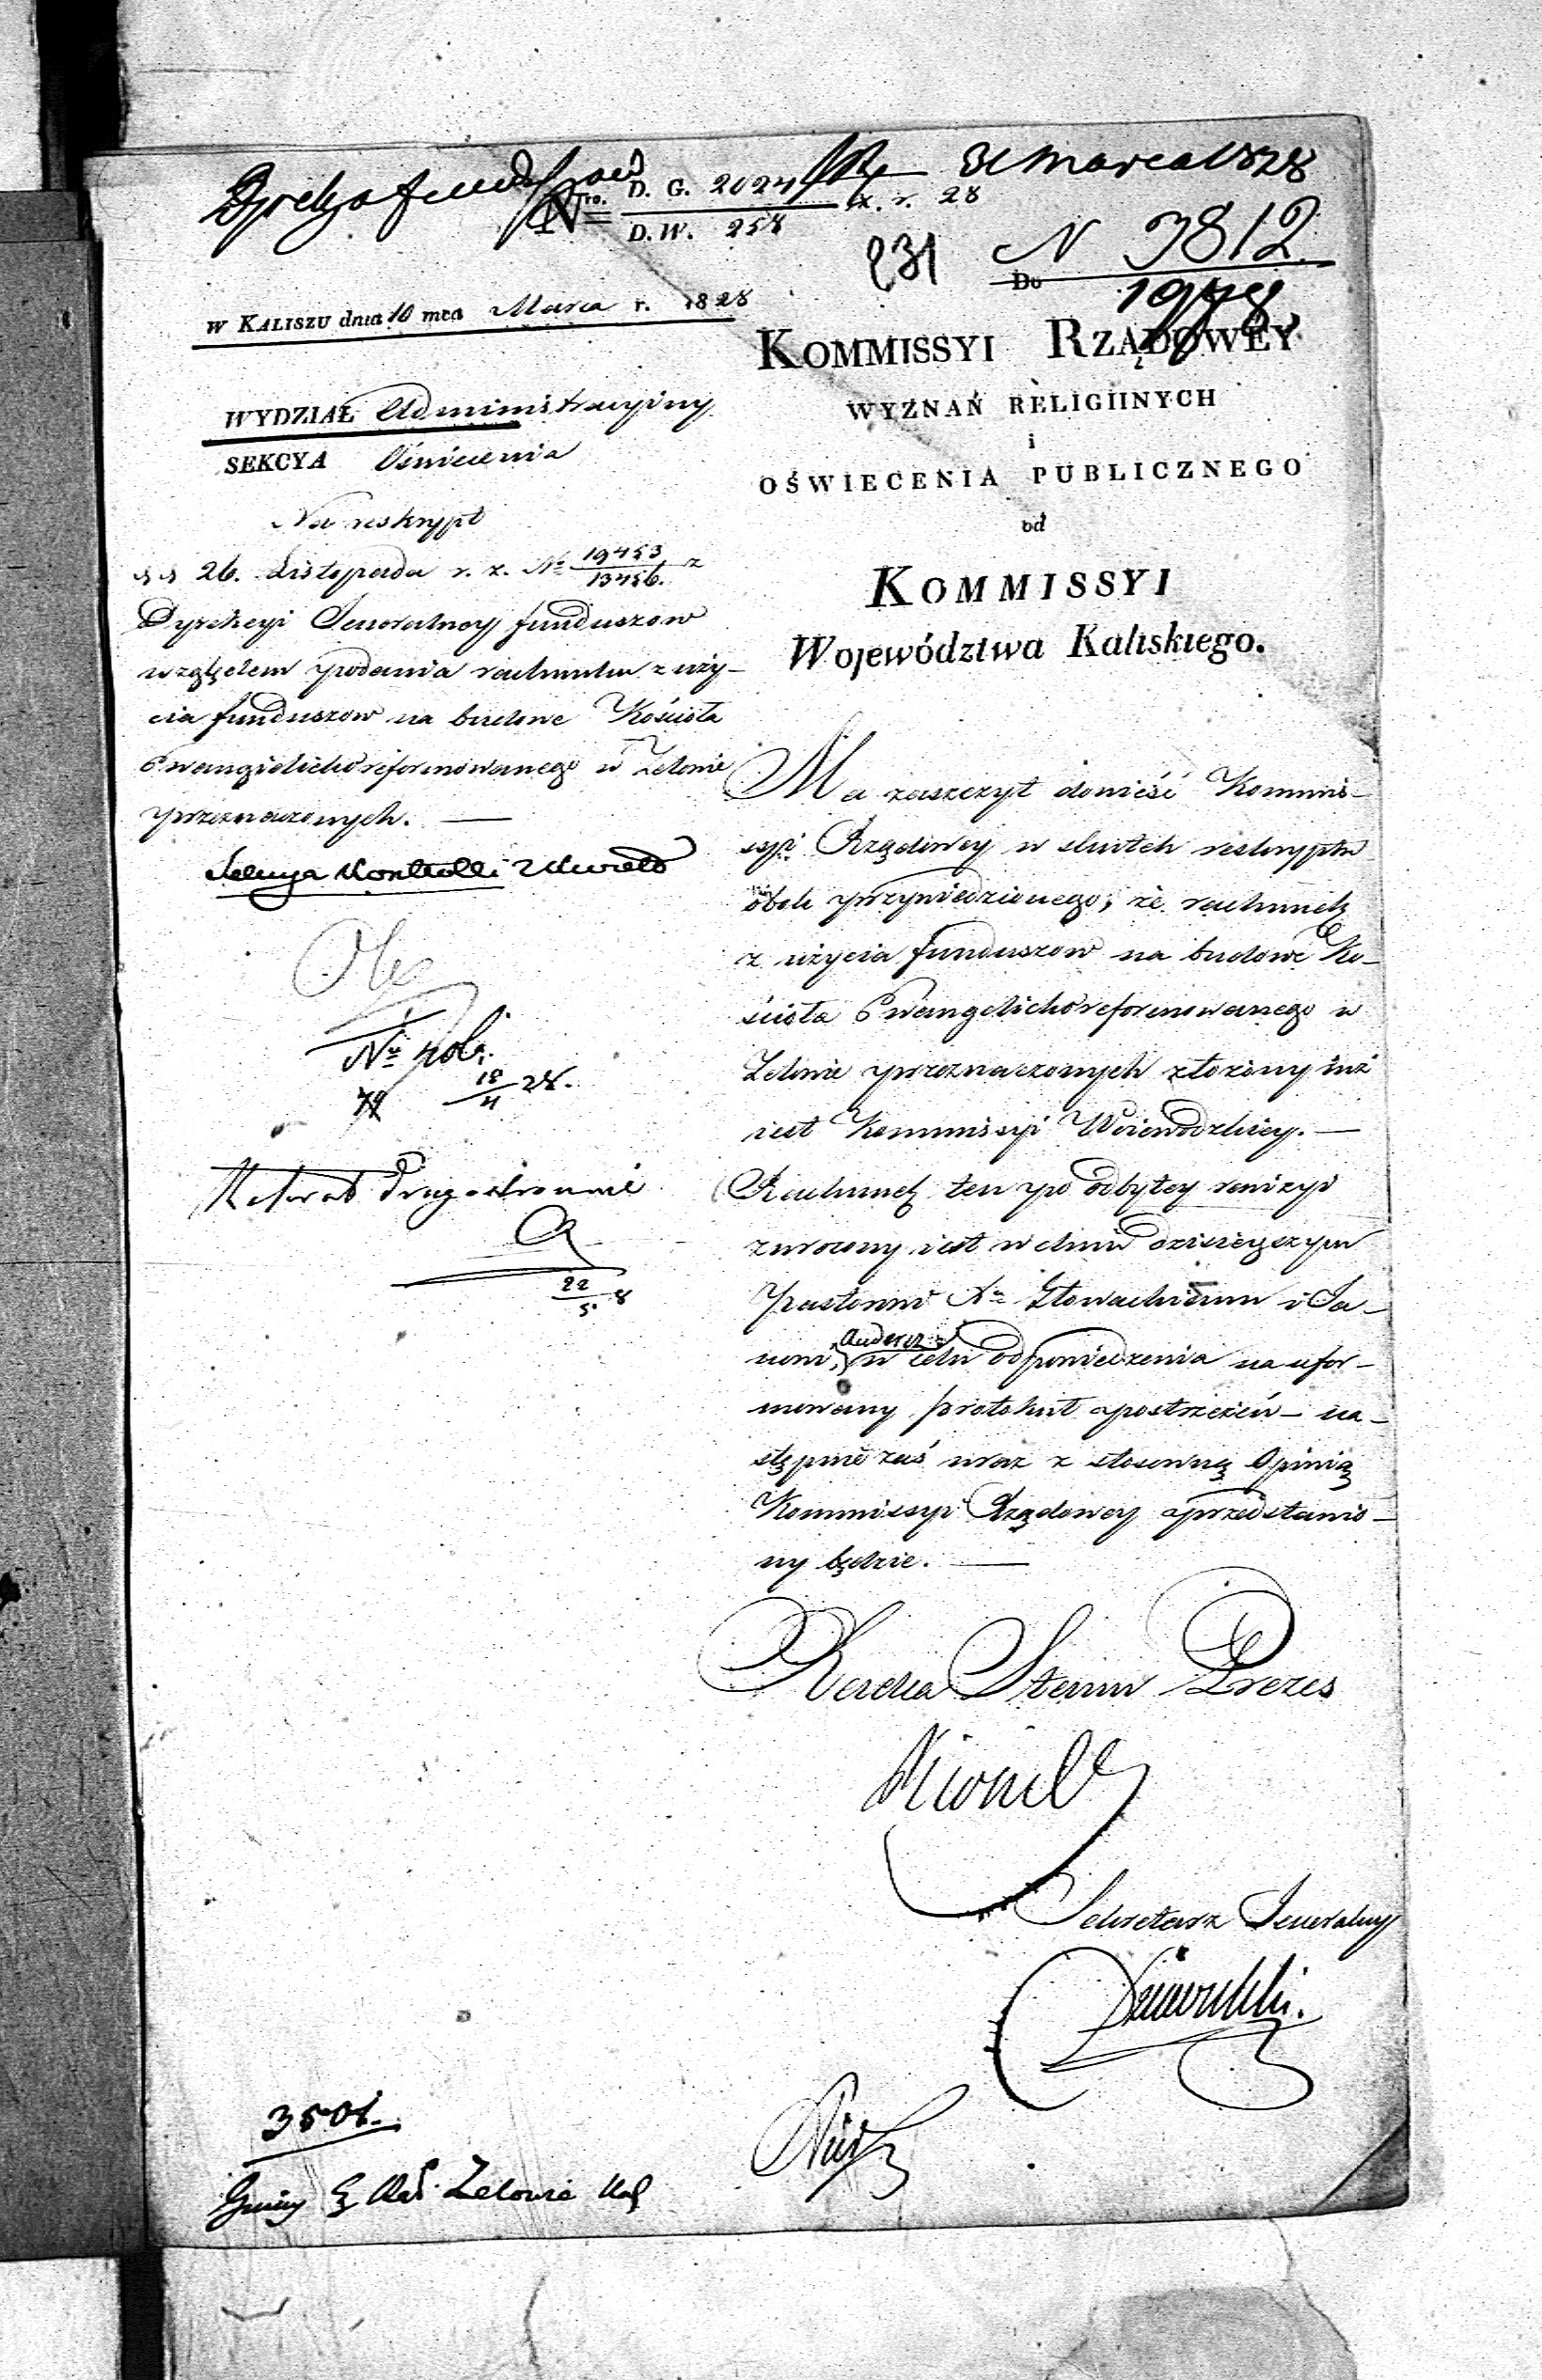 31 Marca 1828
Nro. D. G. 2024
D. W. 258
x. r. 28
231
N 3812
Do
W KALISZU dnia 10 mca Marca r. 1828
KOMMISSYI RZĄDOWEY
WYZNAŃ RELIGIINYCH
i
OŚWIECENIA PUBLICZNEGO
od
KOMMISSYI
Województwa Kaliskiego.
WYDZIAŁ Administracyiny
SEKCYA Oświecenia
Na reskrypt
dd 26. Listopada r. z. No 19453/13456. z
Dyrekcyi Jeneralney funduszow
względem podania rachunku z uży-
cia funduszow na budowe Kościoła
Ewangielickoreformowanego w Zelowie
przeznaczonych. —
Sekcya Kontrolli
18/4 28.
22/5 8
Ma zaszczyt donieść Kommis-
syi Rządowey w skutek reskryptu
obok przywiedzionego, że rachunek
z użycia funduszow na budowe Ko-
ścioła Ewangelickoreformowanego w
Zelowie przeznaczonych złożony iuż
iest Kommissyi Woiewodzkiey. —
Rachunek ten po odbytey rewizyi
zwrocony iest w dniu dzisieyszym
Pastorowi Xu Głowackiemu i Ja-
nowi, w celu odpowiedzenia na ufor-
mowany protokuł spostrzeżeń – na-
stępnie zaś wraz z stosowną Opinią
Kommissyi Rządowey przedstawio-
ny będzie. —
Radca Stanu Prezes
Sekretarz Jeneralny
3501.
Gminy Zelowie